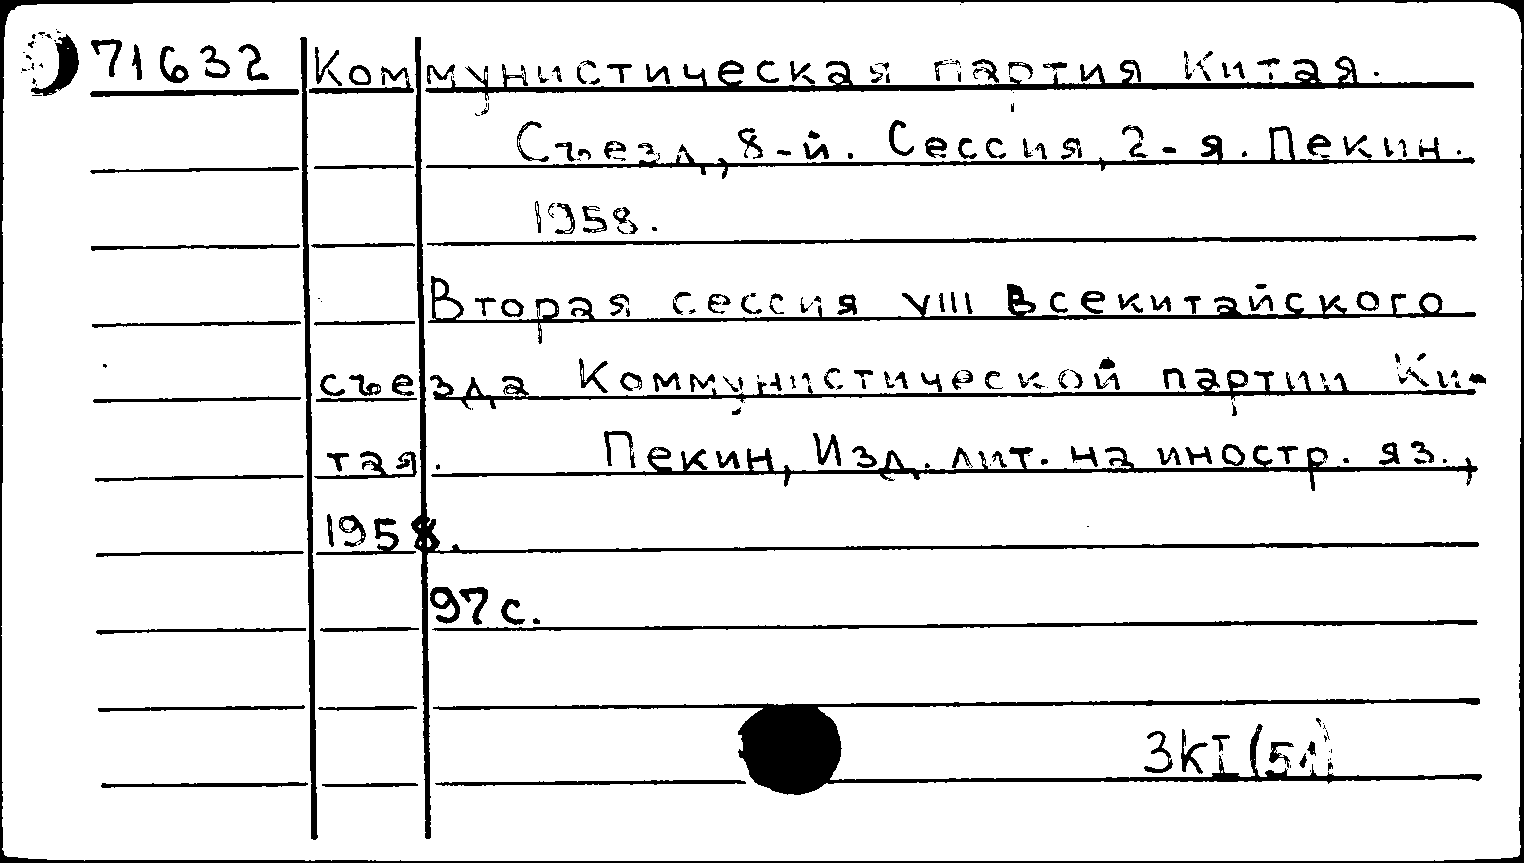 71632 Коммунистическая партия Китая.
Съезд, 8-й. Сессия, 2-я. Пекин.
1958.
Вторая сессия VIII Всекитайского
съезда Коммунистической партии Ки-
тая. Пекин, Изд. лит. на иностр. яз.,
1958.
97 с.
3КI(51)